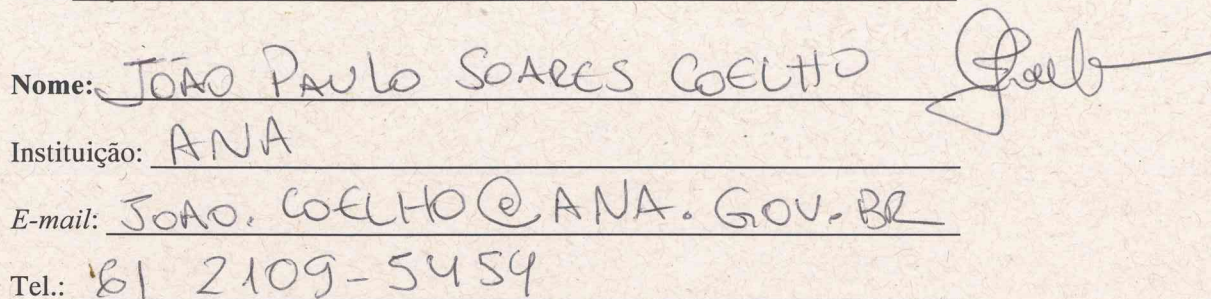 Nome: JOÃO PAULO SOARES COELHO
Instituição: ANA
E-mail: JOAO.COELHO@ANA.GOV.BR
Tel.: 61 2109-5454